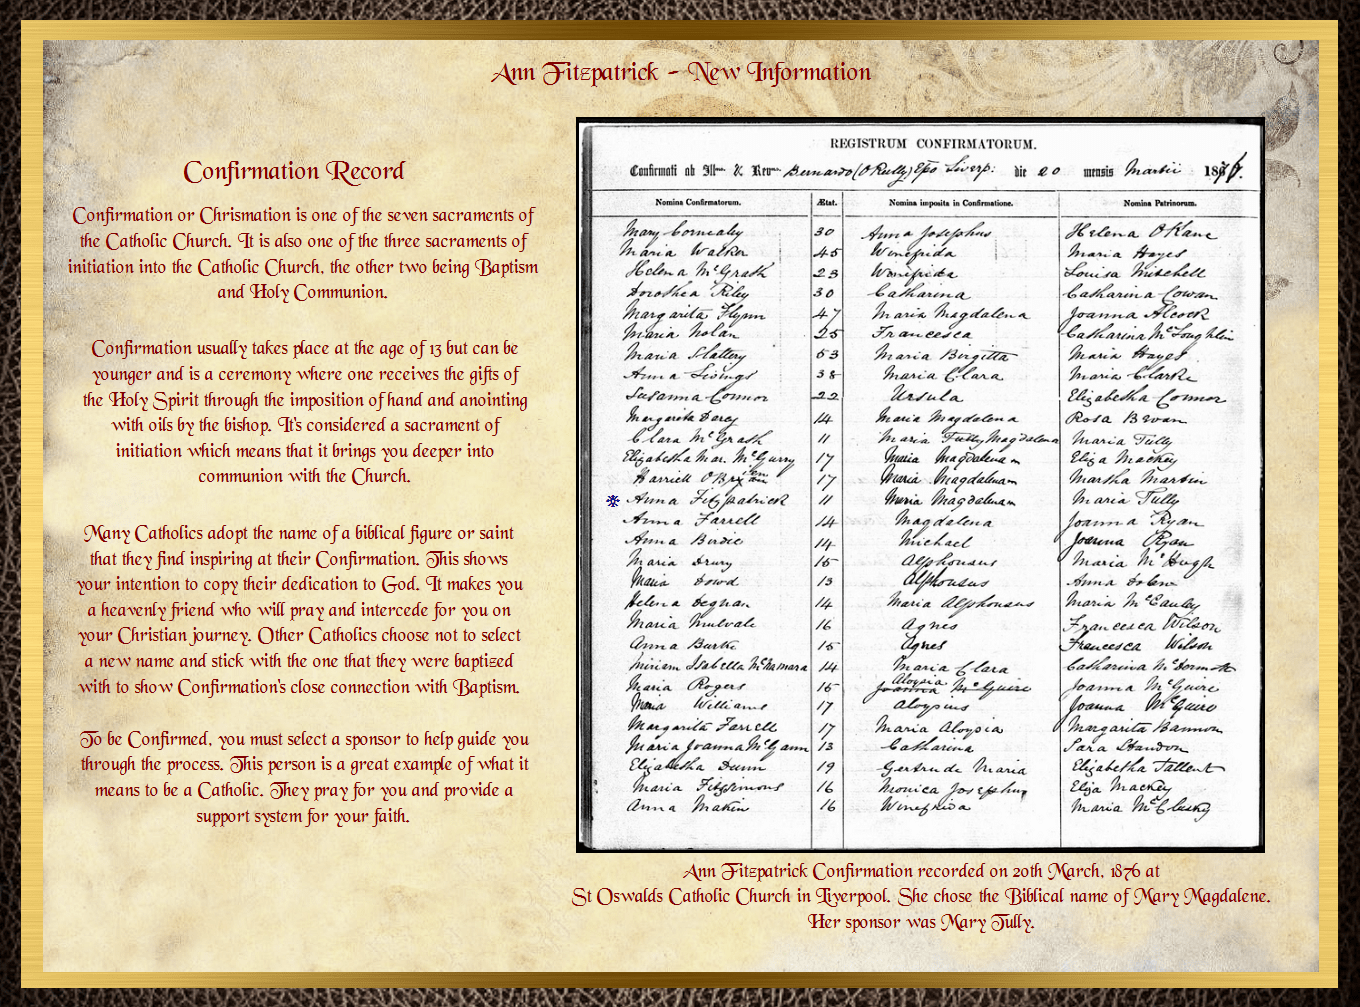 Ann Fitzpatrick - New Information
Confirmation Record
Confirmation or Chrismation is one of the seven sacraments of
the Catholic Church. It is also one of the three sacraments of
initiation into the Catholic Church, the other two being Baptism
and Holy Communion.
Confirmation usually takes place at the age of 13 but can be
younger and is a ceremony where one receives the gifts of
the Holy Spirit through the imposition of hand and anointing
with oils by the bishop. It's considered a sacrament of
initiation which means that it brings you deeper into
communion with the Church.
Many Catholics adopt the name of a biblical figure or saint
that they find inspiring at their Confirmation. This shows
your intention to copy their dedication to God. It makes you
a heavenly friend who will pray and intercede for you on
your Christian journey. Other Catholics choose not to select
a new name and stick with the one that they were baptized
with to show Confirmation's close connection with Baptism.
To be Confirmed, you must select a sponsor to help guide you
through the process. This person is a great example of what it
means to be a Catholic. They pray for you and provide a
support system for your faith.
REGISTRUM CONFIRMATORUM.
Confirmati ab Ill. & Rev. Bernardo (O'Reilly) Epo Liverp: die 20 mensis Martii 1876.
Nomina Confirmatorum. Ætat. Nomina imposita in Confirmatione. Nomina Patrinorum.
Mary 30 Anna Josephus Helena O'Kane
Maria Walker 45 Winefrida Maria Hayes
Helena McGrath 23 Winefrida Louisa Mitchell
Dorothea Riley 30 Catharina Catharina Cowan
Margarita Flynn 47 Maria Magdalena Joanna Alcock
Maria Nolan 25 Francesca Catharina McLoughlin
Maria Slattery 53 Maria Birgitta Maria Hayes
Anna 38 Maria Clara Maria Clarke
Susanna Connor 22 Ursula Elizabetha Connor
Margarita Darcy 14 Maria Magdalena Rosa
Clara McGrath 11 Maria Tully Magdalena Maria Tully
Elizabetha Mar. McGurry 17 Maria Magdalenam Eliza Mackey
Harriett 17 Maria Magdalenam Martha Martin
Anna Fitzpatrick 11 Maria Magdalenam Maria Tully
Anna Farrell 14 Magdalena Joanna Ryan
Anna Birdie 14 Michael Joanna Ryan
Maria Drury 15 Alphonsus Maria McHugh
Maria Dowd 13 Alphonsus Anna
Helena Degnan 14 Maria Alphonsus Maria McCauley
Maria Mulvale 16 Agnes Francesca Wilson
Anna Burke 15 Agnes Francesca Wilson
Miriam Isabella McNamara 14 Maria Clara Catharina McDermott
Maria Rogers 15 Aloysia Joanna McGuire Joanna McGuire
Maria Williams 17 Aloysius Joanna McGuire
Margarita Farrell 17 Maria Aloysia Margarita Bannon
Maria Joanna McGann 13 Catharina Sara
Elizabetha Dunn 19 Gertrude Maria Elizabetha Tallent
Maria Fitzsimons 16 Monica Josephus Eliza Mackey
Anna Makin 16 Winefrida Maria McClusky
Ann Fitzpatrick Confirmation recorded on 20th March, 1876 at
St Oswalds Catholic Church in Liverpool. She chose the Biblical name of Mary Magdalene.
Her sponsor was Mary Tully.